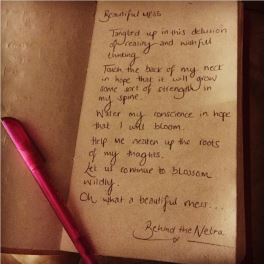 Beautiful mess
Tangled up in this delusion
of reality and wishful
thinking.
Touch the back of my neck
in hope that it will grow
some sort of strength in
my spine.
Water my conscience in hope
that I will bloom.
Help me neaten up the roots
of my thoughts.
Let us continue to blossom
wildly.
Oh what a beautiful mess....
Behind the Netra